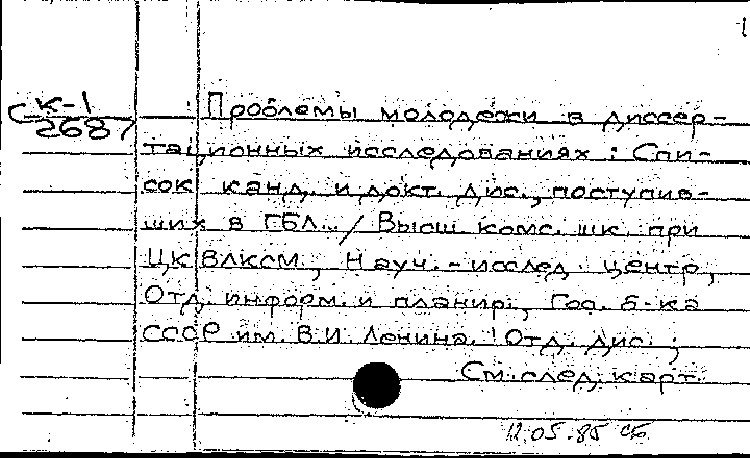 К-1
С 2687
Проблемы молодежи в диссер-
тационных исследованиях: Спи-
сок канд. и докт. дис., поступив-
ших в ГБЛ... / Высш. комс. шк. при
ЦК ВЛКСМ, Науч.-исслед. центр,
Отд. информ. и планир., Гос. б-ка
СССР им. В.И. Ленина. Отд. дис.;
См. след. карт.
12.05.85 СБ